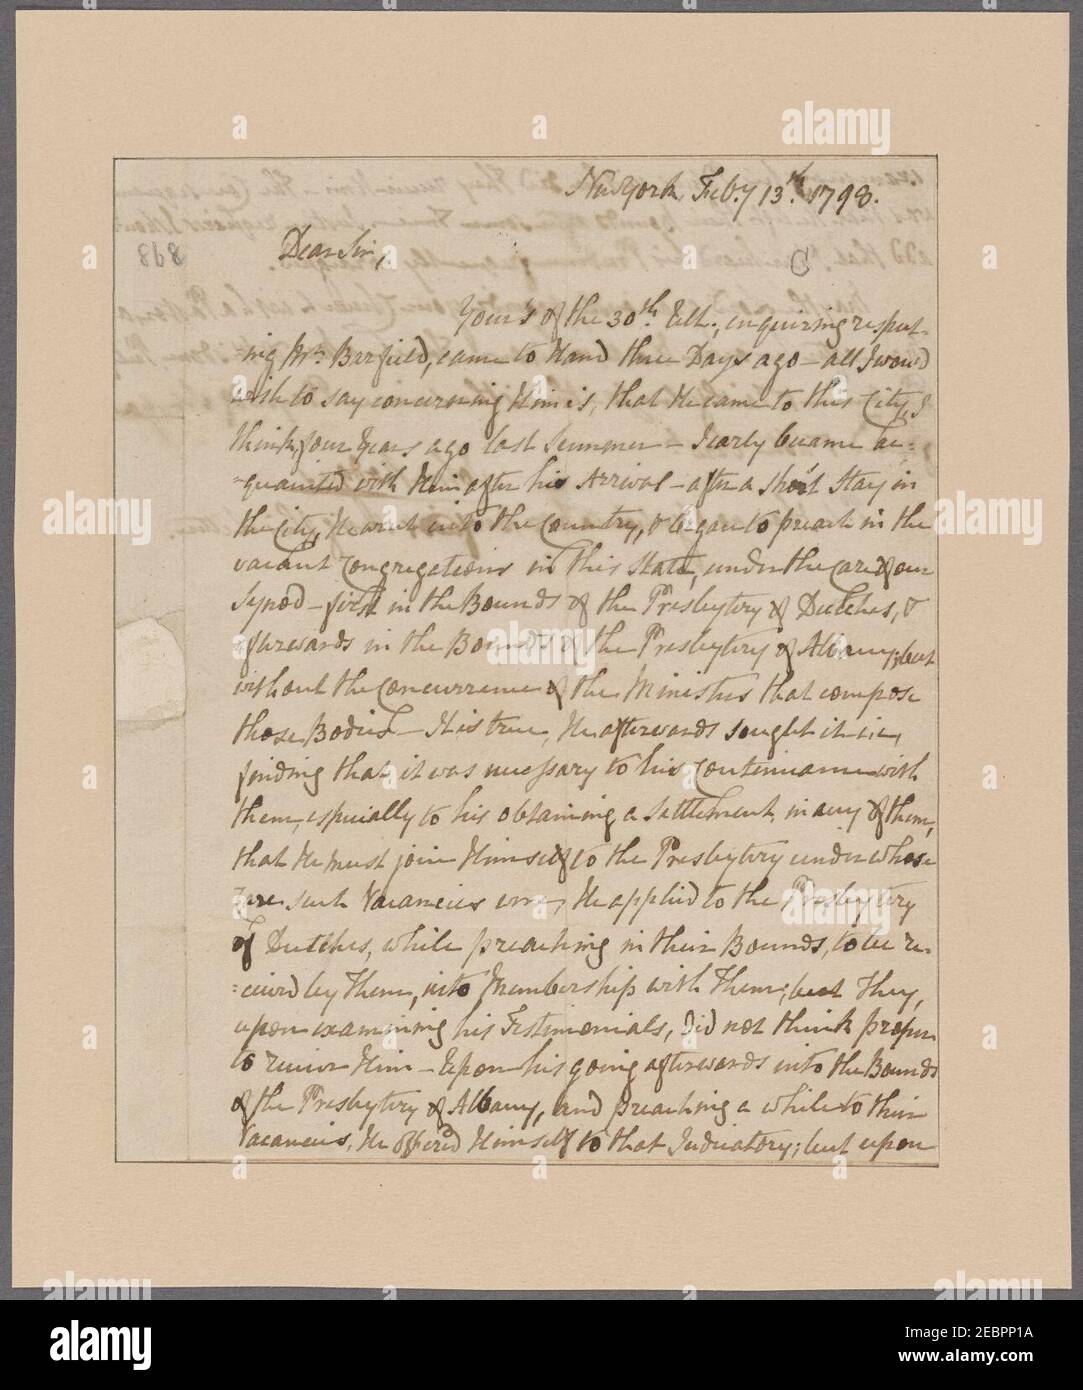 New York, Feb.y 13.th 1798.
Dear Sir,
898
C
Your's of the 30th. Ult., enquiring respect-
=ing Mr. Barfield, came to Hand three Days ago – all I would
wish to say concerning Him is, that He came to this City, I
think, four Years ago last Summer – I early became ac-
=quainted with Him after his Arrival – after a short Stay in
the City, He went into the Country, & began to preach in the
vacant Congregations in this State, under the Care of our
Synod – first in the Bounds of the Presbytery of Dutches, &
afterwards in the Bounds of the Presbytery of Albany; but
without the Concurrence of the Ministers that compose
those Bodies – It is true, He afterwards sought it i.e.,
finding that it was necessary to his Continuance with
them, especially to his obtaining a Settlement, in any of them,
that He must join Himself to the Presbytery under whose
Care such Vacancies were, He applied to the Presbytery
of Dutches, while preaching in their Bounds, to be re-
=ceived by Them, into Membership with Them; but They,
upon examining his Testimonials, did not think proper
to receive Him – Upon his going afterwards into the Bounds
of the Presbytery of Albany, and preaching a while to their
Vacancies, He offered Himself to that Judicatory; but upon
alamy
Image ID: 2EBPP1A
www.alamy.com